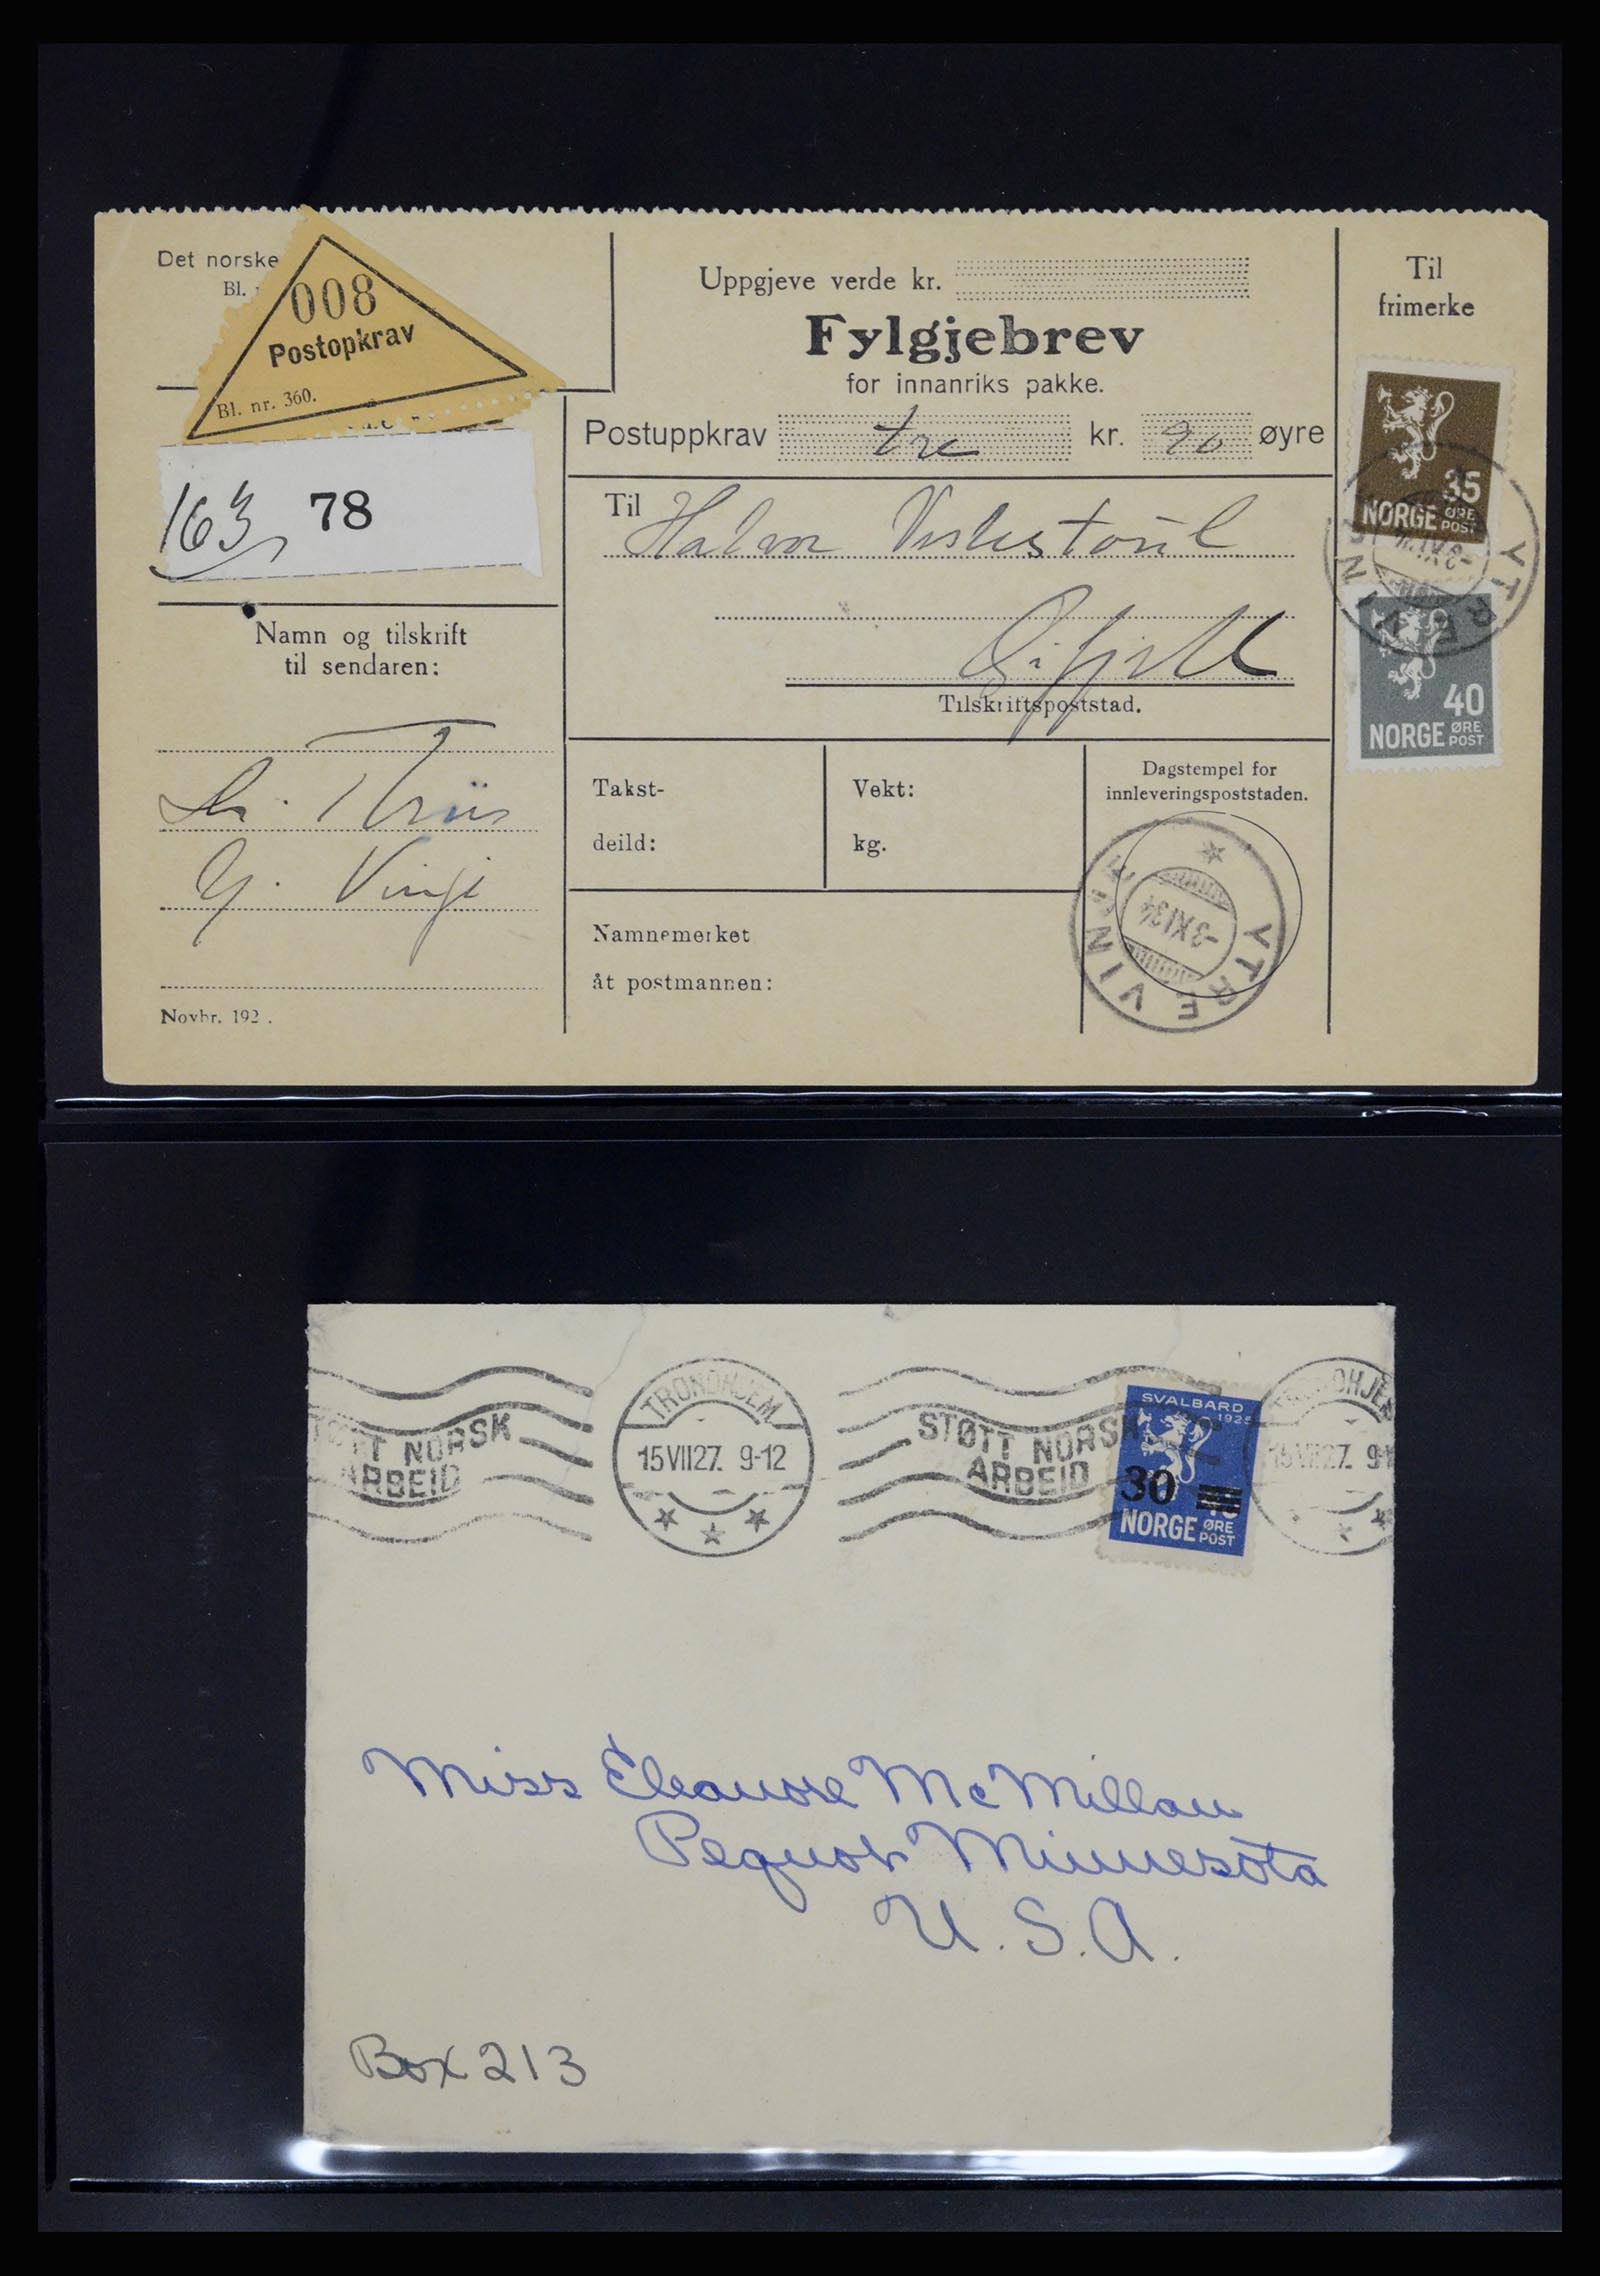 Det norske
Bl.
008
Postopkrav
Bl. nr. 360.
163 78
Namn og tilskrift
til sendaren:
Vinje
Novbr. 192 .
Uppgjeve verde kr.
Fylgjebrev
for innanriks pakke.
Postuppkrav tre kr. 90 øyre
Til
Tilskriftspoststad.
Takst-
deild:
Vekt:
kg.
Namnemerket
åt postmannen:
Dagstempel for
innleveringspoststaden.
YTRE VINJE
-3 XI 34
Til
frimerke
35
NORGE ØRE
POST
YTRE VINJE
40
NORGE ØRE
POST
STØTT NORSK
ARBEID
TRONDHJEM
15 VII 27. 9-12
STØTT NORSK
ARBEID
SVALBARD
1925
30
NORGE ØRE
POST
TRONDHJEM
15 VII 27. 9-1
Miss Eleanore McMillan
Pequot Minnesota
U. S. A.
Box 213